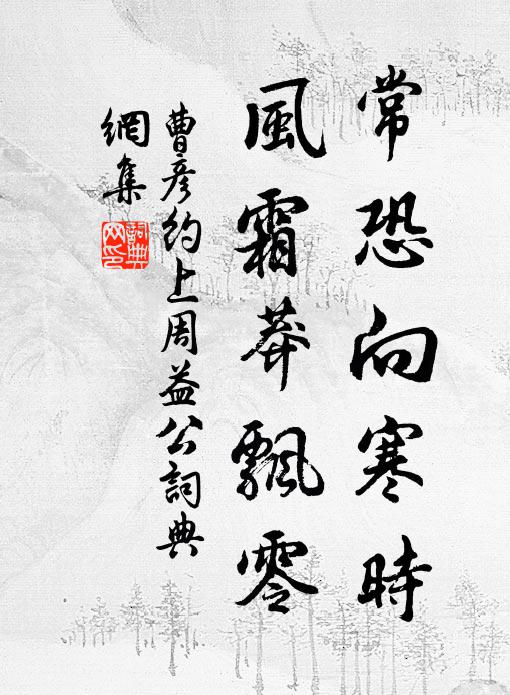 常恐向寒時
風霜莽飄零
曹彦約上周益公詞典
網集
詞典
网印